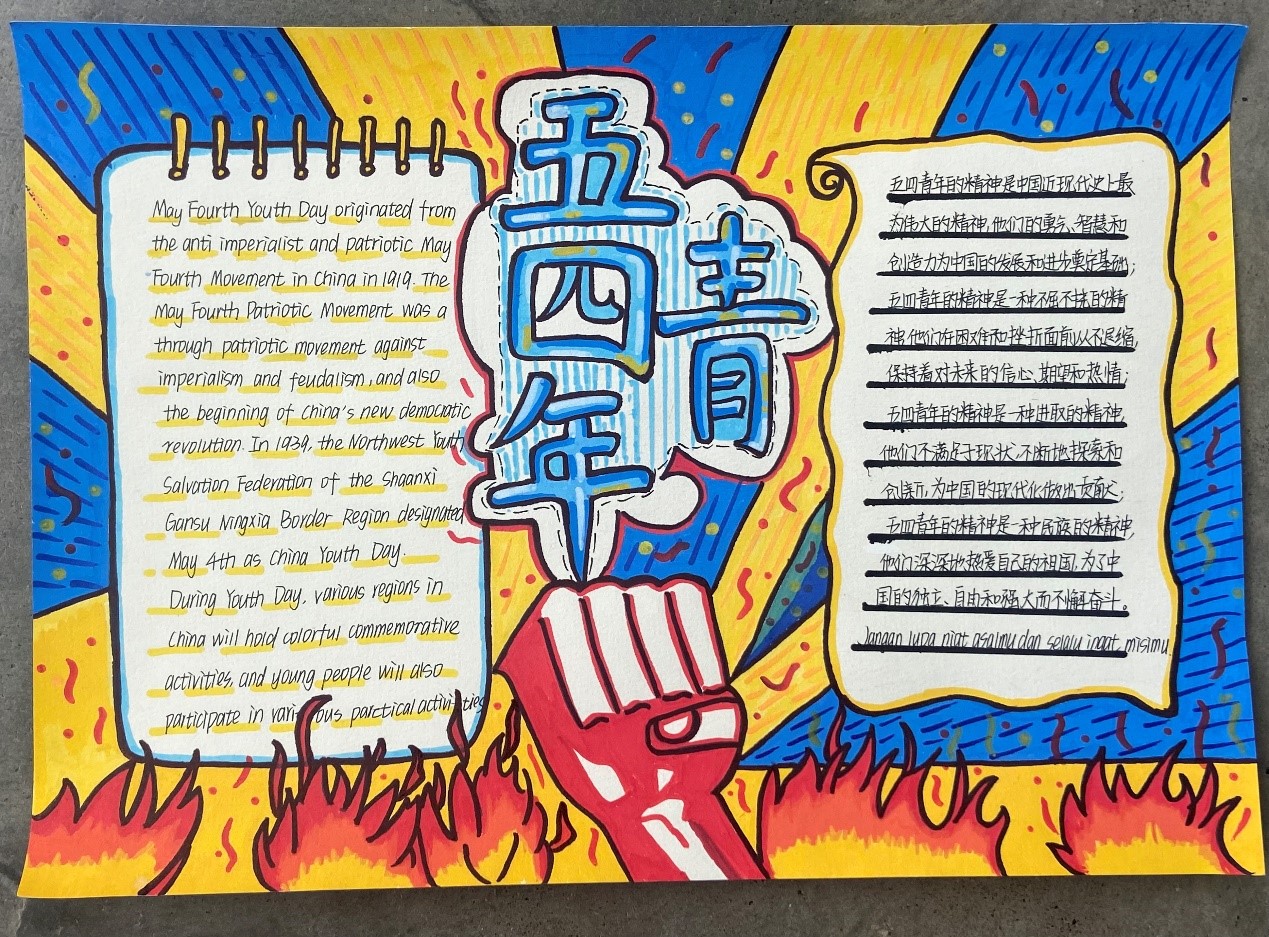 五四
青年
May Fourth Youth Day originated from
the anti imperialist and patriotic May
Fourth Movement in China in 1919. The
May Fourth Patriotic Movement was a
through patriotic movement against
imperialism and feudalism, and also
the beginning of China's new democratic
revolution. In 1939, the Northwest Youth
Salvation Federation of the Shaanxi
Gansu Ningxia Border Region designated
May 4th as China Youth Day.
During Youth Day, various regions in
China will hold colorful commemorative
activities, and young people will also
participate in various parctical activities
五四青年的精神是中国近现代史上最
为伟大的精神,他们的勇气、智慧和
创造力为中国的发展和进步奠定基础;
五四青年的精神是一种不屈不挠的精
神,他们在困难和挫折面前从不退缩,
保持着对未来的信心、期望和热情;
五四青年的精神是一种进取的精神,
他们不满足于现状,不断地探索和
创新,为中国的现代化做出贡献;
五四青年的精神是一种民族的精神,
他们深深地热爱自己的祖国,为了中
国的独立、自由和强大而不懈奋斗。
Jangan lupa niat asalmu dan selalu ingat misimu.